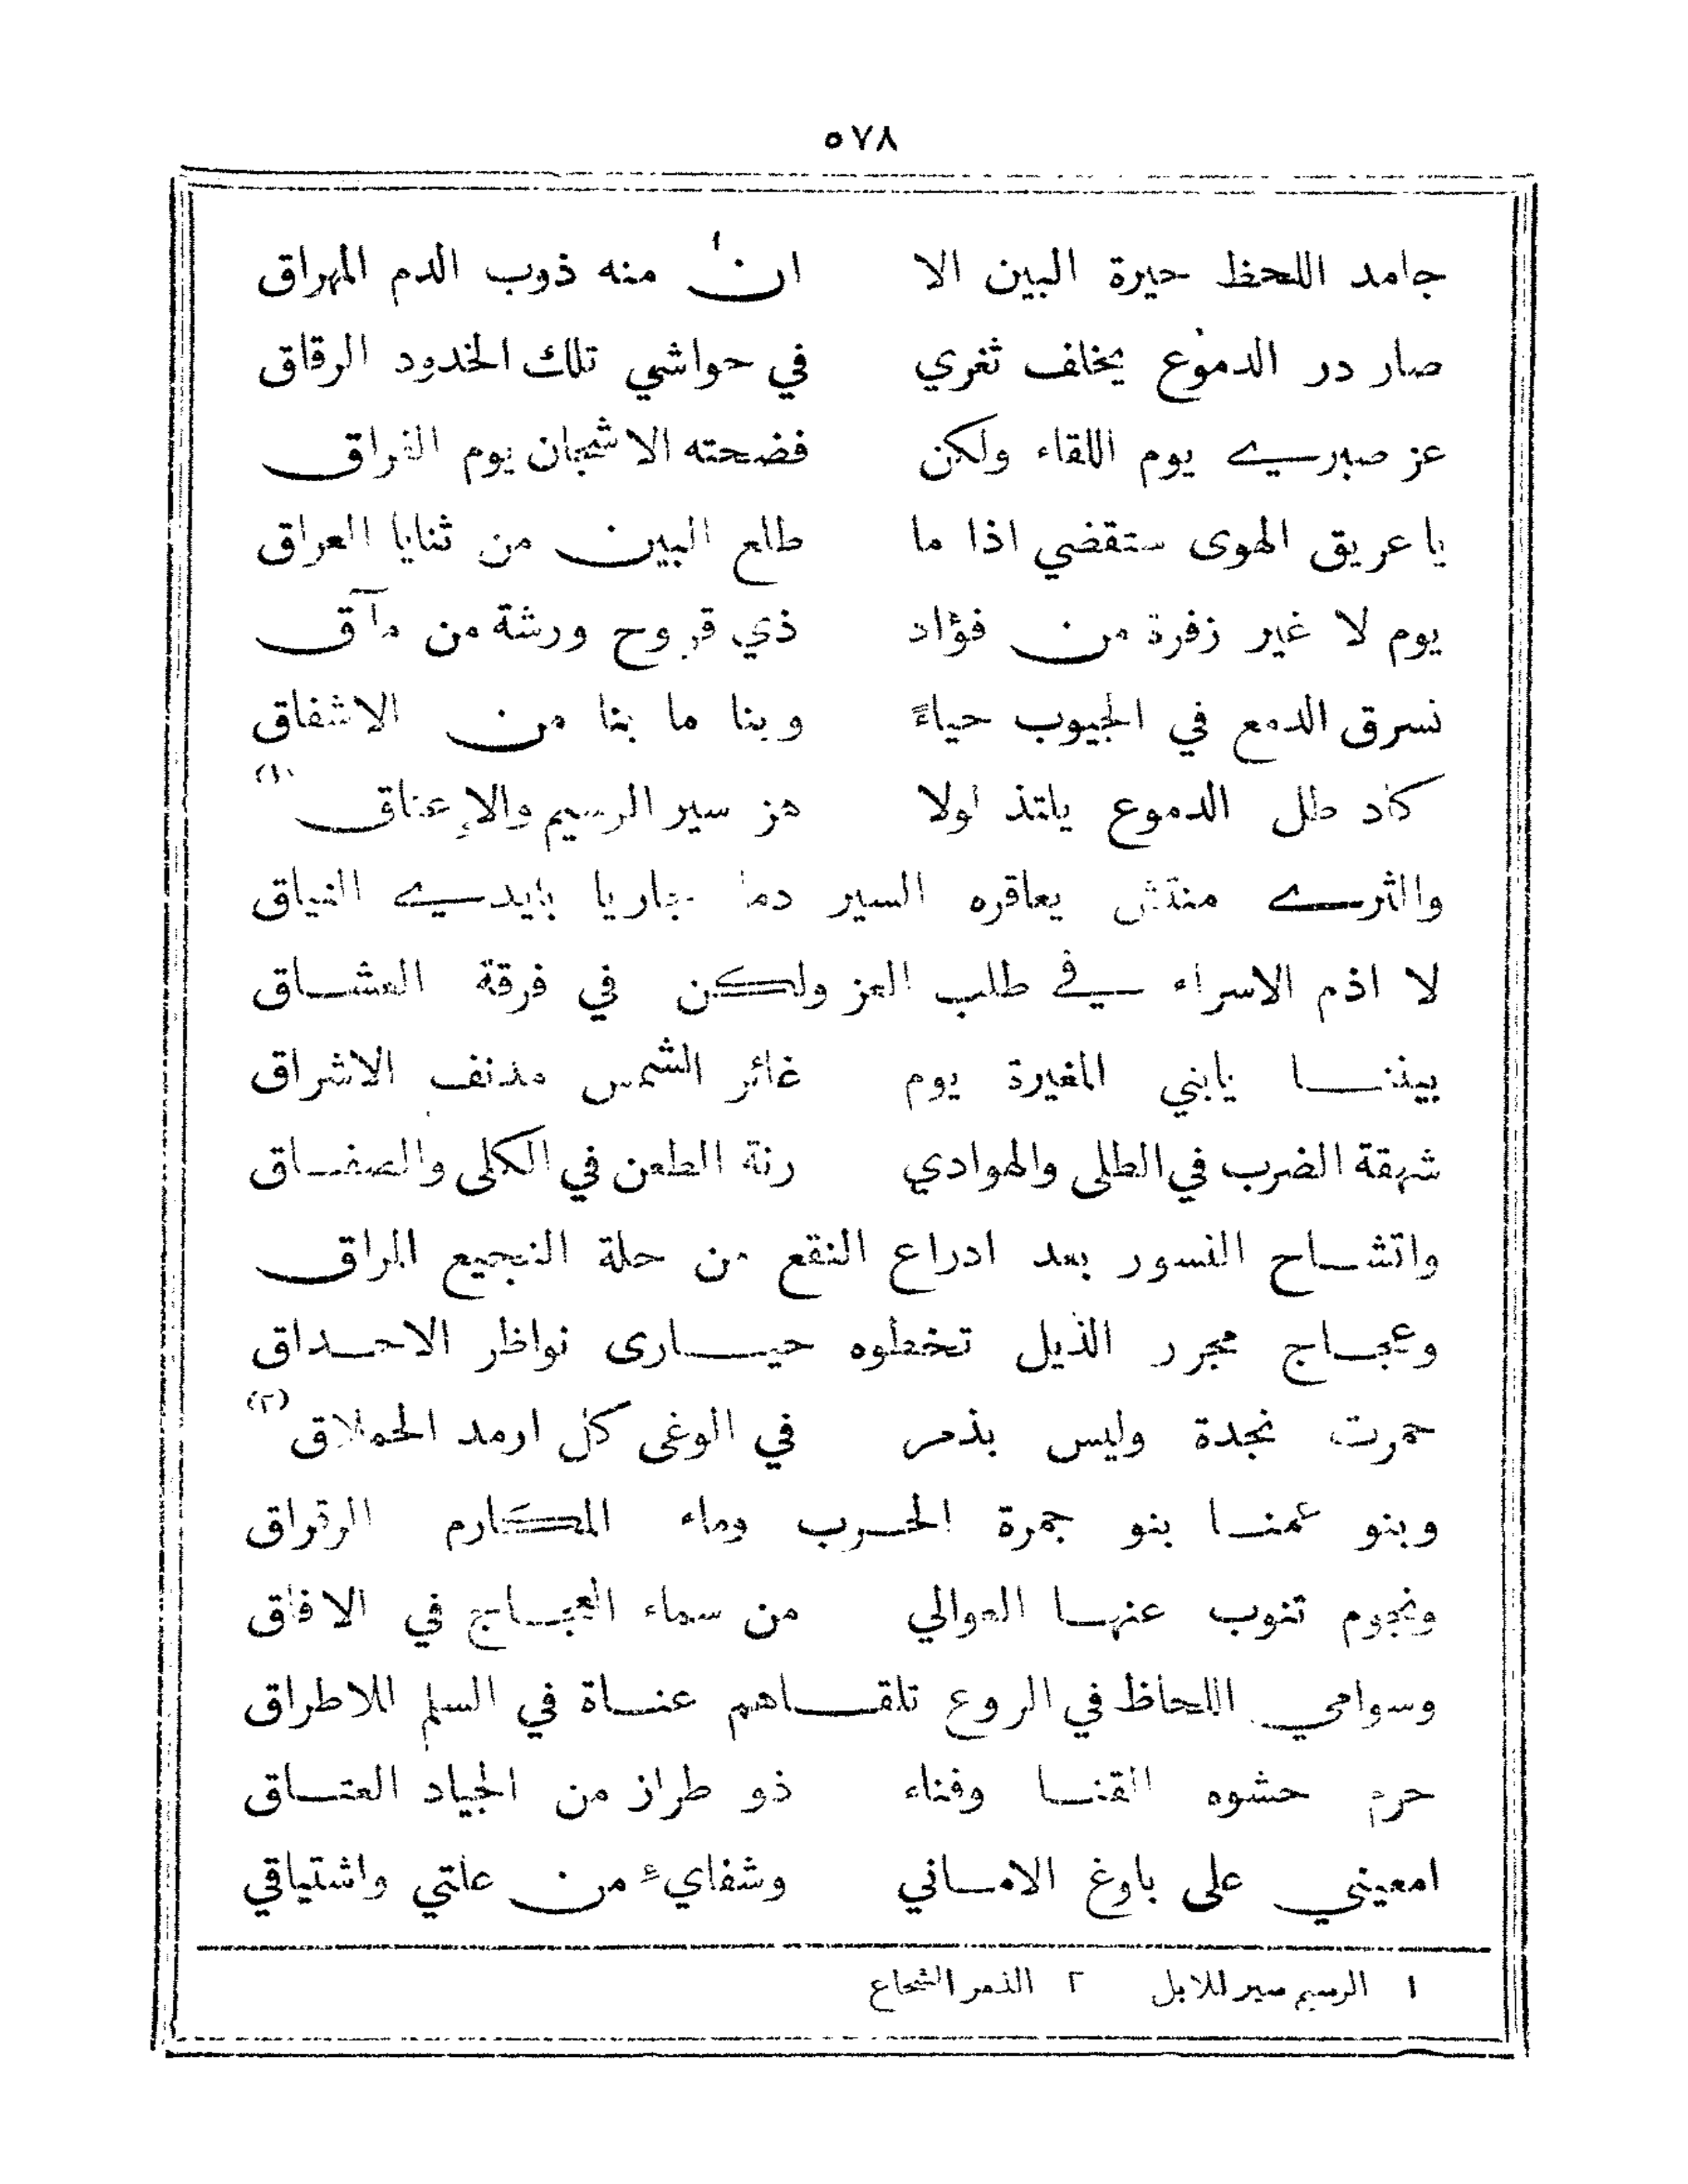 ٥٧٨
جامد اللحظ حيرة البين الا ان منه ذوب الدم المهراق
صار در الدموع يخلف ثغري في حواشي تلك الخدود الرقاق
عز صبري يوم اللقاء ولكن فضحته الاشجان يوم الفراق
يا عريق الهوى ستقضي اذا ما طلع البين من ثنايا العراق
يوم لا غير زفرة من فؤاد ذي قروح ورشة من مآق
نسرق الدمع في الجيوب حياءً وبنا ما بنا من الاشفاق
كاد طل الدموع يلتذ لولا هز سير الرسيم والإعناق (١)
والثرى منتش يعاقره السير دما جاريا بايدي النياق
لا اذم الاسراء في طلب العز ولكن في فرقة العشاق
بيننا يابني المغيرة يوم غائر الشمس مدنف الاشراق
شهقة الضرب في الطلى والهوادي رنة الطعن في الكلى والصفاق
واتشاح النسور بعد ادراع النقع من حلة النجيع المراق
وعجاج مجرر الذيل تخطوه حيارى نواظر الاحداق
حمرت نجدة وليس بذمر في الوغى كل ارمد الحملاق (٢)
وبنو عمنا بنو جمرة الحرب وماء المكارم الرقراق
ونجوم تنوب عنها العوالي من سماء العجاج في الافاق
وسوامي اللحاظ في الروع تلقاهم عناة في السلم للاطراق
حرم حشوه القنا وفناء ذو طراز من الجياد العتاق
امعيني على بلوغ الاماني وشفايء من علتي واشتياقي
١ الرسيم سير للابل ٢ الذمر الشجاع